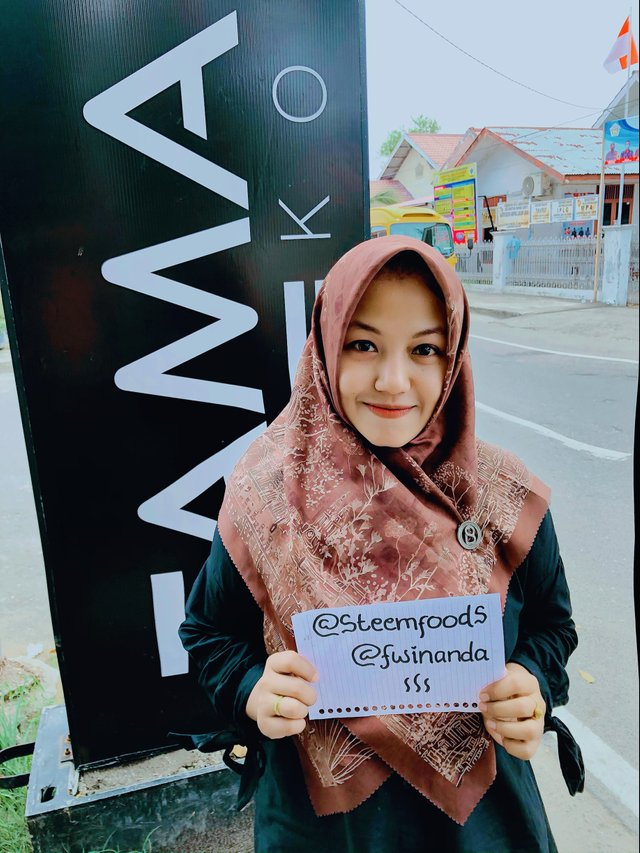 TAMA
KO
@Steemfoods
@fwinanda
sss